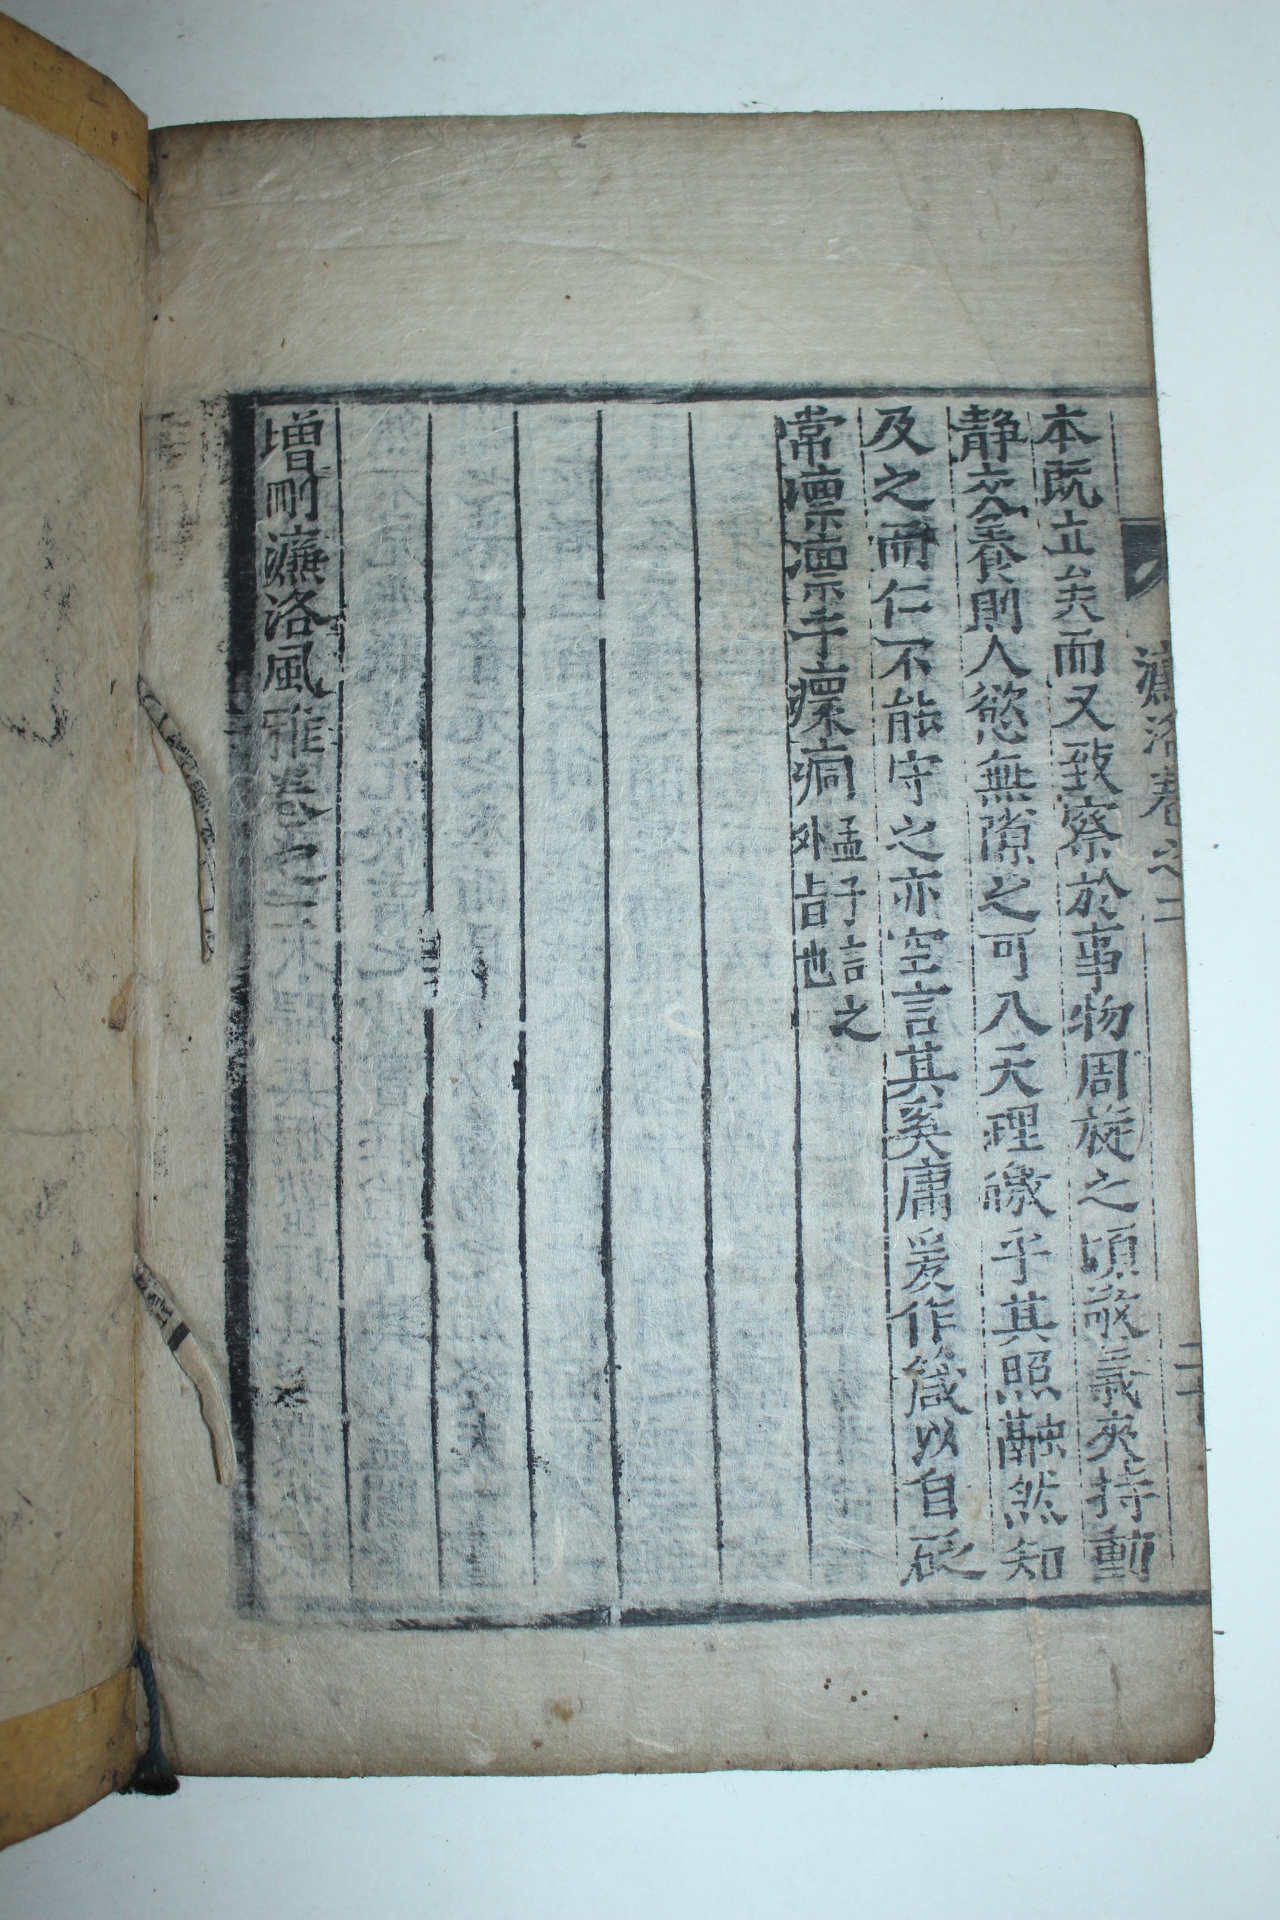 濂洛卷之二
二十
本既立矣而又致察於事物周旋之頃敬義夾持動
静交養則人慾無隙之可入天理皦乎其照融然知
及之而仁不能守之亦空言其奚庸爰作箴以自砭
常凛凛乎癝痌
孟子言之
外旨也
增刪濂洛風雅卷之二